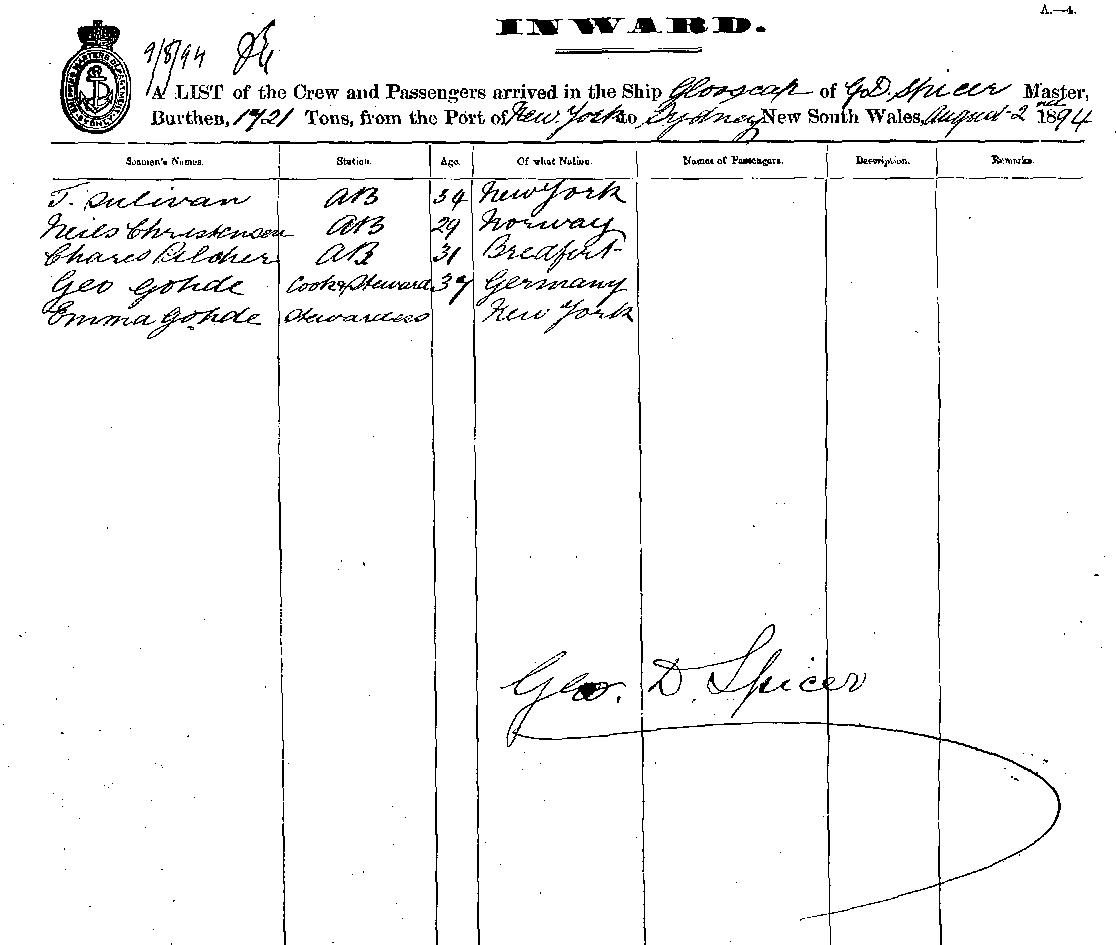 A.—4.
INWARD.
9/8/94
A LIST of the Crew and Passengers arrived in the Ship Glooscap of G.D. Spicer Master,
Burthen, 1721 Tons, from the Port of New York to Sydney New South Wales, August 2nd 1894
Seamen's Names. Station. Age. Of what Nation. Names of Passengers. Description. Remarks.
T. Sulivan AB 34 New York
Neils Christensen AB 29 Norway
Chares Pilcher AB 31 Bredfort
Geo Gohde Cook & Steward 37 Germany
Emma Gohde Stewardess New York
Geo. D. Spicer